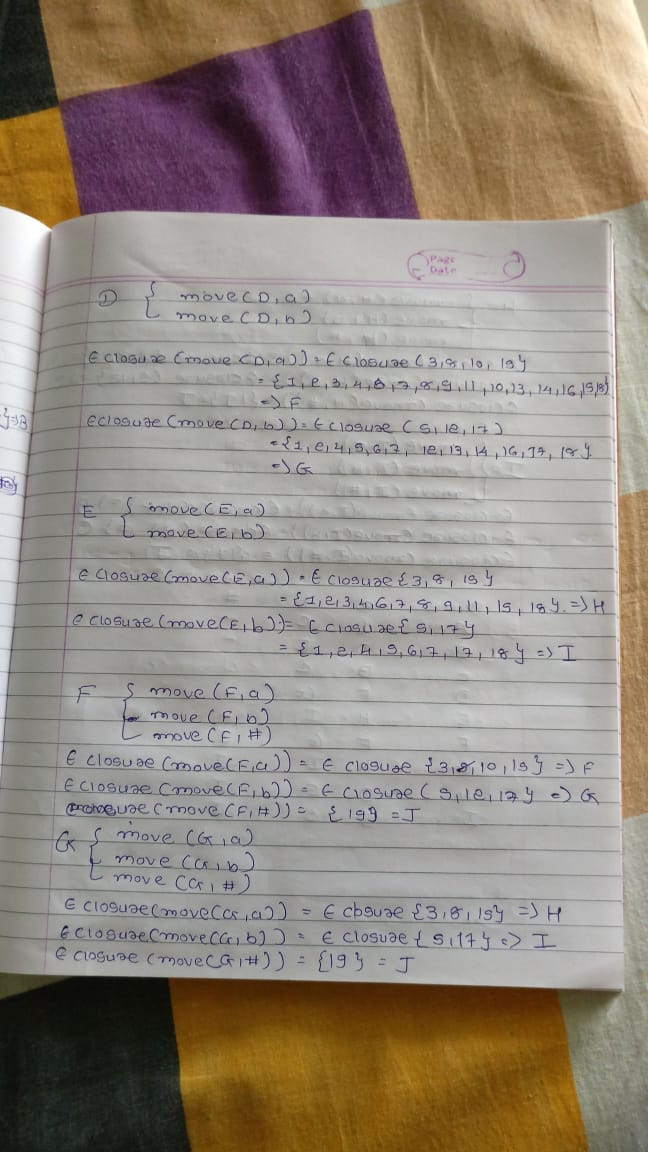 Page
Date
D { move(D,a)
move(D,b)
Є closure(move(D,a)) = Є closure(3,8,10,15}
= {1,2,3,4,6,7,8,9,11,10,13,14,16,15,18}
=> F
Є closure(move(D,b)) = Є closure(5,12,17)
= {1,2,4,5,6,7,12,13,14,16,17,18}
=> G
E { move(E,a)
move(E,b)
Є closure(move(E,a)) = Є closure{3,8,15}
= {1,2,3,4,6,7,8,9,11,15,18} => H
Є closure(move(E,b)) = Є closure{5,17}
= {1,2,4,5,6,7,17,18} => I
F { move(F,a)
move(F,b)
move(F,#)
Є closure(move(F,a)) = Є closure {3,8,10,15} => F
Є closure(move(F,b)) = Є closure(5,12,17} => G
closure(move(F,#)) = {19} = J
G { move(G,a)
move(G,b)
move(G,#)
Є closure(move(G,a)) = Є closure{3,8,15} => H
Є closure(move(G,b)) = Є closure{5,17} => I
Є closure(move(G,#)) = {19} = J
}=>B